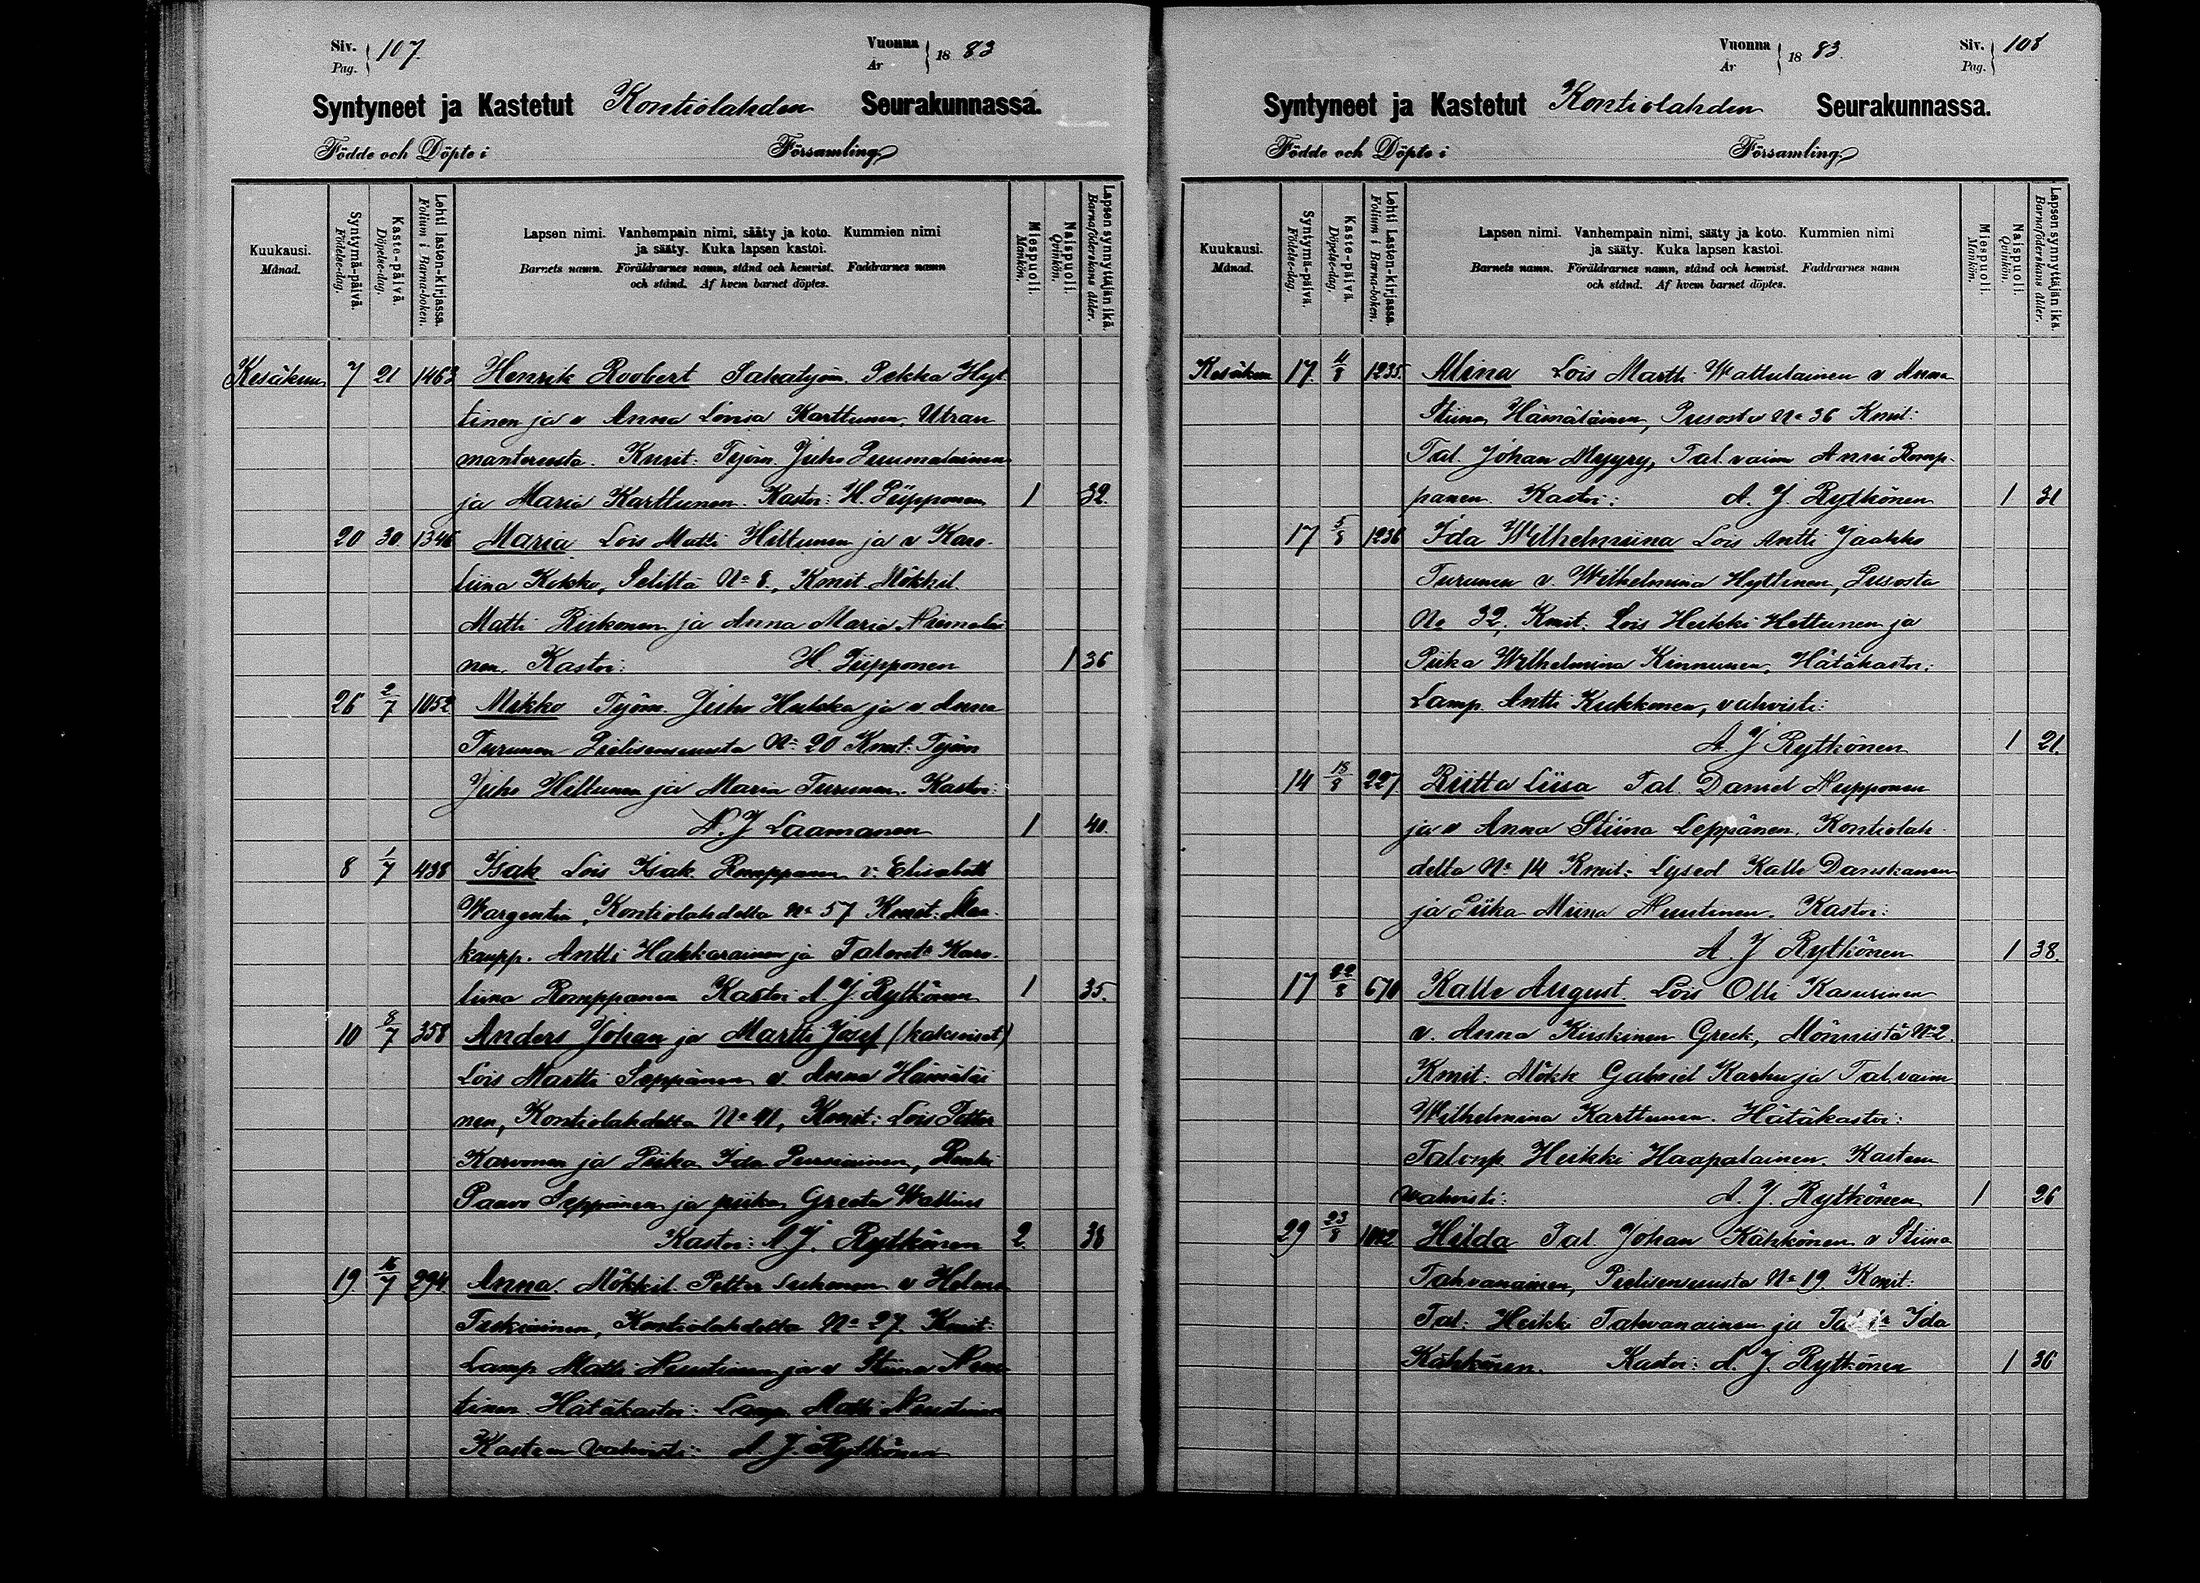 Siv. Pag. 107.
Vuonna År 1883
Syntyneet ja Kastetut Kontiolahden Seurakunnassa.
Födde och Döpte i Församling
Kuukausi. Månad.
Syntymä-päivä. Födelse-dag.
Kaste-päivä. Döpelse-dag.
Lehti lasten-kirjassa. Folium i Barna-boken.
Lapsen nimi. Vanhempain nimi, sääty ja koto. Kummien nimi
ja sääty. Kuka lapsen kastoi.
Barnets namn. Föräldrarnes namn, stånd och hemvist. Faddrarnes namn
och stånd. Af hvem barnet döptes.
Miespuoli. Mankön.
Naispuoli. Qvinkön.
Lapsen synnyttäjän ikä. Barnaföderskans ålder.
Kesäkuu 7 21 1463 Henrik Roobert Sahatyöm. Pekka Hyt
tinen ja v Anna Lovisa Karttunen, Utran
manteresta. Kmit: Työm. Juho Puumalainen
ja Maria Karttunen. Kastoi: H. Piipponen 1 32.
20 30 1346 Maria Lois Matti Hiltunen ja v Karo
liina Kokko, Seliltä No 8., Kmit Mökkil.
Matti Riikonen ja Anna Maria Niemelai
nen, Kastoi: H. Piipponen 1 36
26 2/7 1052 Mikko Työm. Juho Hukka ja v Anna
Turunen Pielisensuusta No 20 Kmit: Työm
Juho Hiltunen ja Maria Turunen. Kastoi:
N. J Laamanen 1 40.
8 1/7 438 Isak Lois Isak Romppanen v: Elisabeth
Wargentin, Kontiolahdelta No 57 Kmit:
kaupp. Antti Hakkarainen ja Karo
liina Romppanen Kastoi A. J. Rytkönen 1 35.
10 8/7 358 Anders Johan ja Martti Josef (kaksoiset)
Lois Martti Seppänen v. Anna Hämäläi
nen, Kontiolahdelta No 41, Kmit: Lois Petter
Karvonen ja Piika Ida Pursiainen, Renki
Paavo Seppänen ja piika Greeta
Kastoi: A J. Rytkönen 2. 38
19. 16/7 294 Anna. Mökkil. Petter Suhonen v Helena
Turkiainen, Kontiolahdelta No 27. Kmit:
Lamp. Matti Nuutinen ja v Stiina Nuu
tinen. Hätäkastoi: Lamp. Matti Nuutinen
Kasteen vahvisti: A J. Rytkönen
Vuonna År 1883.
Siv. Pag. 108
Syntyneet ja Kastetut Kontiolahden Seurakunnassa.
Födde och Döpte i Församling
Kuukausi. Månad.
Syntymä-päivä. Födelse-dag.
Kaste-päivä. Döpelse-dag.
Lehti Lasten-kirjassa. Folium i Barna-boken.
Lapsen nimi. Vanhempain nimi, sääty ja koto. Kummien nimi
ja sääty. Kuka lapsen kastoi.
Barnets namn. Föräldrarnes namn, stånd och hemvist. Faddrarnes namn
och stånd. Af hvem barnet döptes.
Miespuoli. Mankön.
Naispuoli. Qvinkön.
Lapsen synnyttäjän ikä. Barnaföderskans ålder.
Kesäkuu 17. 4/8 1235. Miina Lois Martti Wattulainen v Anna
Stiina Hämäläinen, Pusosta No 36 Kmit:
Tal. Johan Myyry, Tal. vaim Anni Romp
panen. Kastoi: A. J Rytkönen 1 31
17 5/8 1236 Ida Wilhelmiina Lois Antti Jaakko
Turunen v. Wilhelmina Hyttinen, Pusosta
No 32, Kmit. Lois Heikki Hettunen ja
Piika Wilhelmina Kinnunen, Hätäkastoi:
Lamp. Antti Kukkonen, vahvisti:
A. J Rytkönen 1 21.
14 18/8 227 Riitta Liisa Tal. Daniel Nupponen
ja v Anna Stiina Leppänen. Kontiolah
delta No 14 Kmit: Kalle Danskanen
ja Piika Miina Nuutinen. Kastoi:
A. J Rytkönen 1 38.
17 22/8 670 Kalle August. Lois Olli Kasurinen
v. Anna Kiiskinen Greek, Mönnistä No 2.
Kmit: Mökk Gabriel Karhu ja Tal. vaim
Wilhelmina Karttunen. Hätäkastoi:
Talonp Heikki Haapalainen. Kasteen
vahvisti: A. J. Rytkönen 1 26
29 23/8 1042 Hilda Tal Johan Kähkönen v Stiina
Tahvanainen, Pielisensuusta No 19. Kmit:
Tal. Heikki Tahvanainen ja Ida
Kähkönen. Kastoi: A. J. Rytkönen 1 36